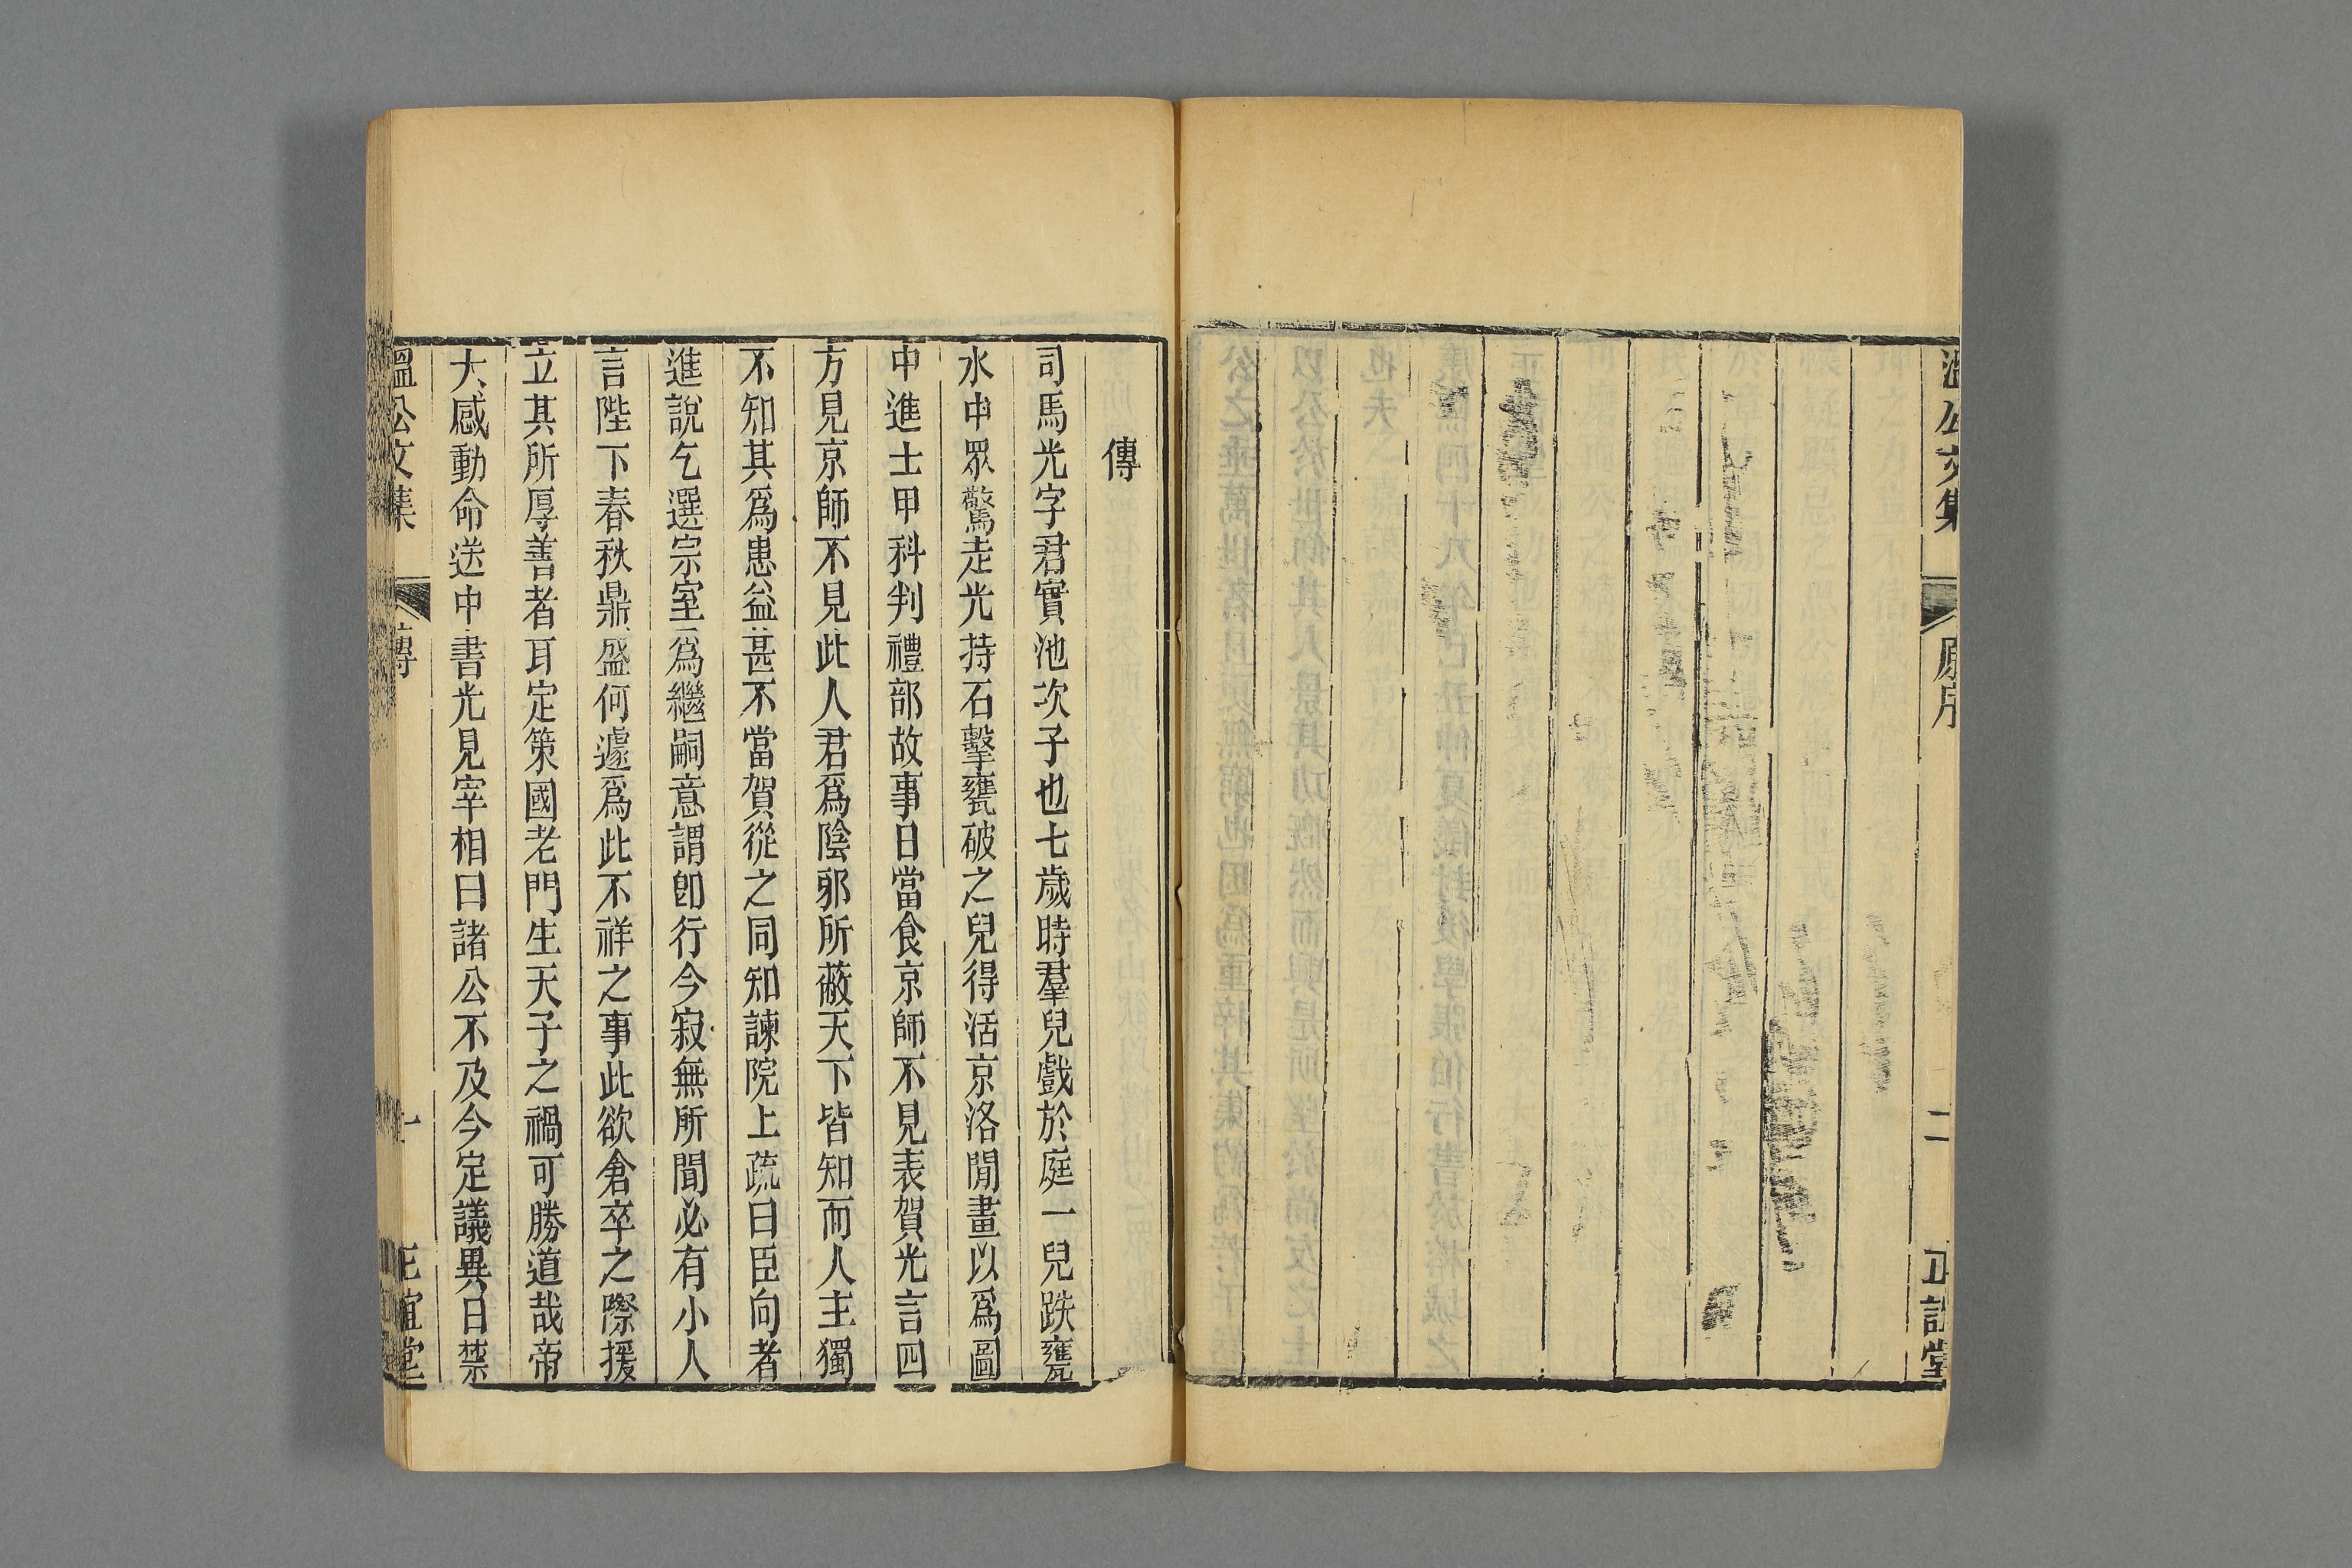 溫公文集
原序
二
正誼堂
傳
司馬光字君實池次子也七歲時羣兒戲於庭一兒跌甕
水中眾驚走光持石擊甕破之兒得活京洛閒畫以爲圖
中進士甲科判禮部故事日當食京師不見表賀光言四
方見京師不見此人君爲陰邪所蔽天下皆知而人主獨
不知其爲患益甚不當賀從之同知諫院上疏曰臣向者
進說乞選宗室爲繼嗣意謂卽行今寂無所聞必有小人
言陛下春秋鼎盛何遽爲此不祥之事此欲倉卒之際援
立其所厚善者耳定策國老門生天子之禍可勝道哉帝
大感動命送中書光見宰相曰諸公不及今定議異日禁
溫公文集
傳
一
正誼堂